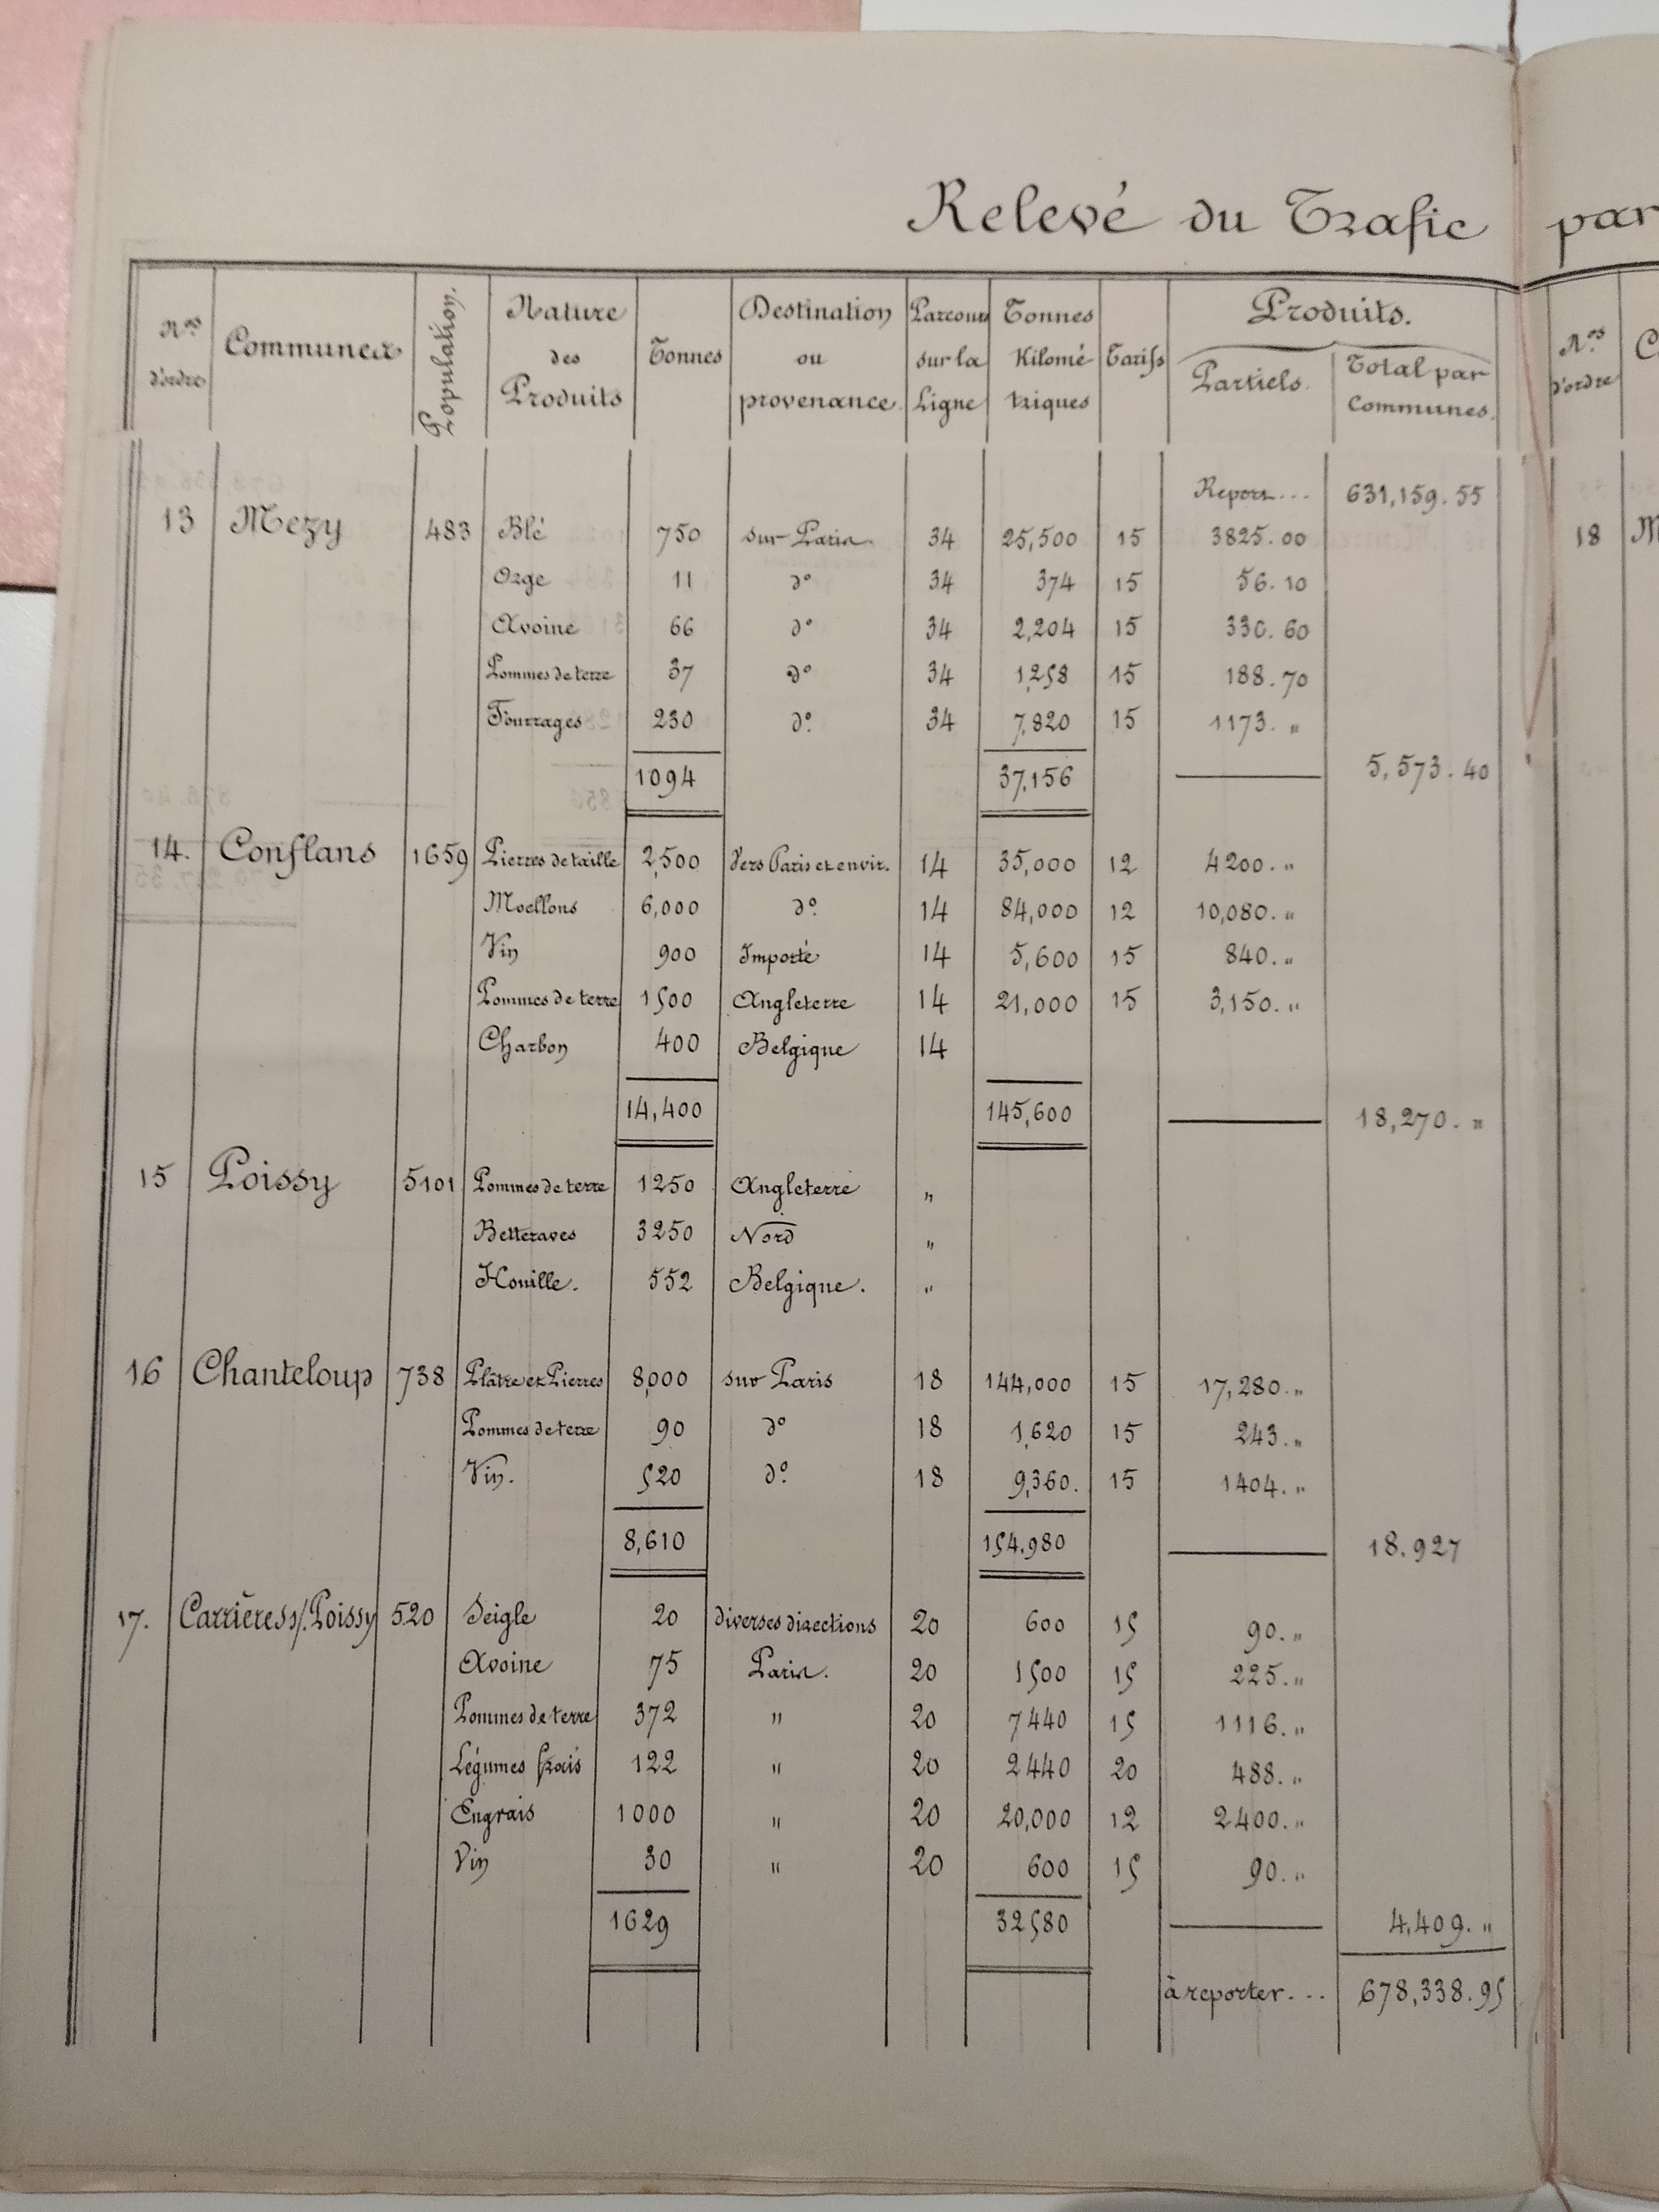 Relevé du Trafic par
Nos d'ordre | Communes | Population. | Nature des Produits | Tonnes | Destination ou provenance. | Parcours sur la Ligne | Tonnes Kilomé triques | Tarifs | Produits. Partiels. | Total par Communes. | Nos d'ordre
Report... | 631,159.55
13 | Mezy | 483 | Blé | 750 | sur Paris | 34 | 25,500 | 15 | 3825.00 | 18
Orge | 11 | do | 34 | 374 | 15 | 56.10
Avoine | 66 | do | 34 | 2,204 | 15 | 330.60
Pommes de terre | 37 | do | 34 | 1,258 | 15 | 188.70
Fourrages | 230 | do. | 34 | 7,820 | 15 | 1173. "
1094 | 37,156 | 5,573.40
14. | Conflans | 1659 | Pierres de taille | 2,500 | Vers Paris et envir. | 14 | 35,000 | 12 | 4200. "
Moellons | 6,000 | do. | 14 | 84,000 | 12 | 10,080. "
Vin | 900 | Importé | 14 | 5,600 | 15 | 840. "
Pommes de terre | 1500 | Angleterre | 14 | 21,000 | 15 | 3,150. "
Charbon | 400 | Belgique | 14
14,400 | 145,600 | 18,270. "
15 | Poissy | 5101 | Pommes de terre | 1250 | Angleterre | "
Betteraves | 3250 | Nord | "
Houille. | 552 | Belgique. | "
16 | Chanteloup | 738 | Plâtre et Pierres | 8,000 | sur Paris | 18 | 144,000 | 15 | 17,280. "
Pommes de terre | 90 | do | 18 | 1,620 | 15 | 243. "
Vin. | 520 | do. | 18 | 9,360. | 15 | 1404. "
8,610 | 154.980 | 18.927
17. | Carrières s/. Poissy | 520 | Seigle | 20 | diverses directions | 20 | 600 | 15 | 90. "
Avoine | 75 | Paris. | 20 | 1500 | 15 | 225. "
Pommes de terre | 372 | " | 20 | 7440 | 15 | 1116. "
Légumes frais | 122 | " | 20 | 2440 | 20 | 488. "
Engrais | 1000 | " | 20 | 20,000 | 12 | 2400. "
Vin | 30 | " | 20 | 600 | 15 | 90. "
1629 | 32580 | 4,409. "
à reporter... | 678,338.95